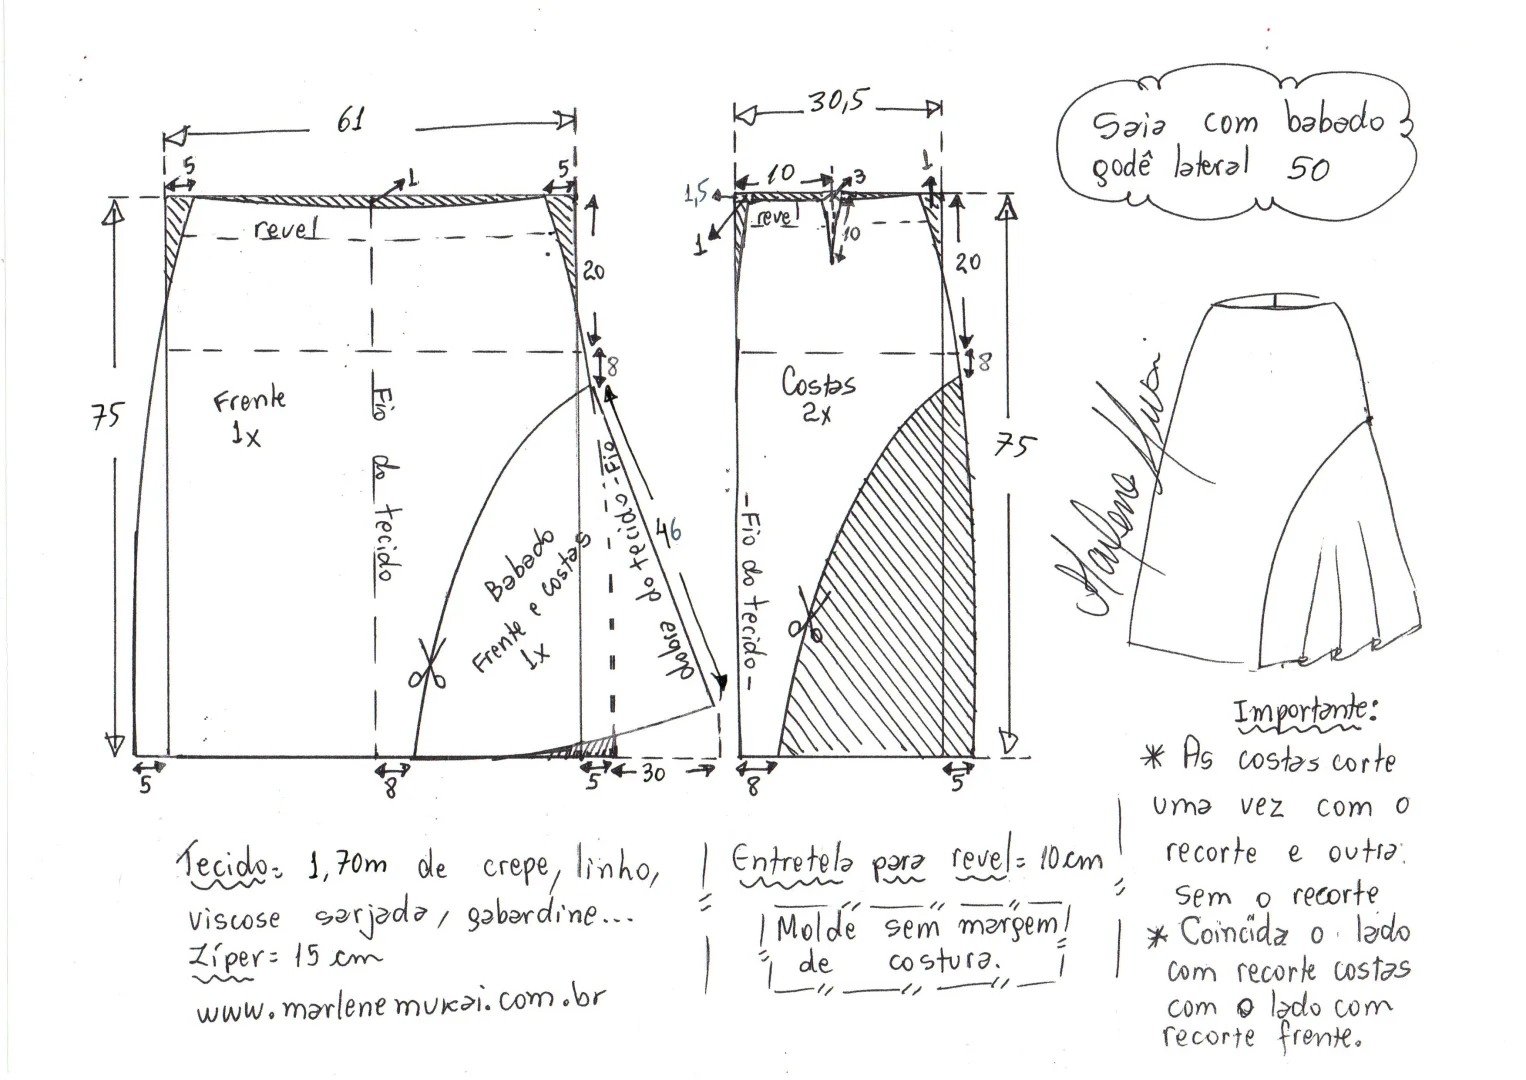 Saia com babado
godê lateral 50
61
5
5
1
revel
20
8
75
Frente
1x
Fio do tecido
46
Fio do tecido
Babado
Frente e costas
1x
dobra
5
8
5
30
30,5
10
3
1
1,5
1
revel
10
20
8
75
Costas
2x
Fio do tecido
8
5
Marlene Mukai
Importante:
* As costas corte
uma vez com o
recorte e outra
sem o recorte
* Coincida o lado
com recorte costas
com o lado com
recorte frente.
Tecido= 1,70m de crepe, linho,
viscose sarjada, gabardine...
Zíper= 15 cm
www.marlenemukai.com.br
Entretela para revel= 10 cm
Molde sem margem
de costura.